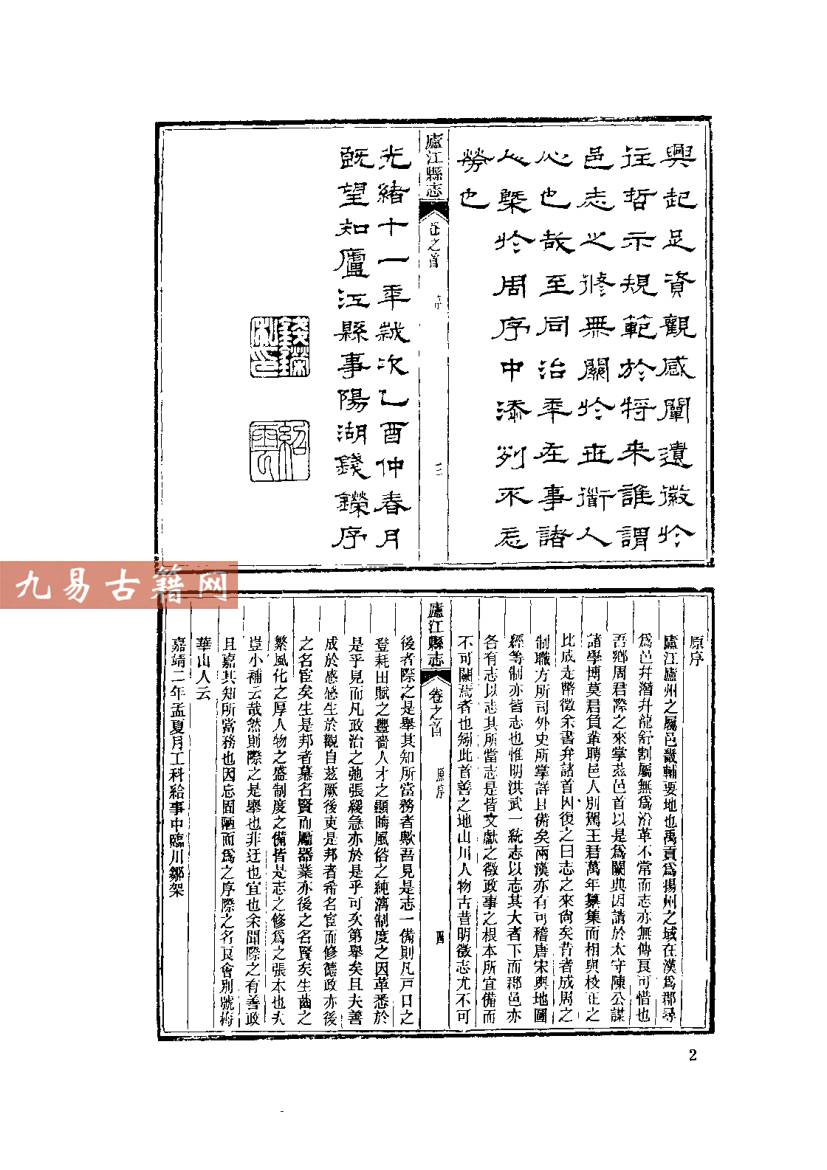 興起足資觀感闡遺徽於
往哲示規範於将来誰謂
邑志之修無關於世衜人
心也哉至同治年在事諸
人槩於周序中添列不忘
勞也
廬江縣志
卷之首
序
三
光緒十一年歲次乙酉仲春月
既望知廬江縣事陽湖錢鑅序
原序
廬江廬州之屬邑畿輔要地也禹貢爲揚州之域在漢爲郡尋
爲邑幷潛幷龍舒割屬無爲沿革不常而志亦無傳良可惜也
吾鄉周君際之來掌茲邑首以是爲闕典因請於太守陳公謀
諸學博莫君負軰聘邑人別駕王君萬年纂集而相與校正之
比成走幣徵余書弁諸首因復之曰志之來尙矣昔者成周之
制職方所司外史所掌詳且備矣兩漢亦有可稽唐宋輿地圖
經等制亦皆志也惟明洪武一統志以志其大者下而郡邑亦
各有志以志其所當志是皆文獻之徵政事之根本所宜備而
不可闕焉者也矧此首善之地山川人物古昔明徵志尤不可
廬江縣志
卷之首
原序
四
後者際之是舉其知所當務者歟吾見是志一備則凡戸口之
登耗田賦之豐嗇人才之顯晦風俗之純漓制度之因革悉於
是乎見而凡政治之弛張緩急亦於是乎可次第舉矣且夫善
成於感感生於觀自茲厥後吏是邦者希名宦而修德政亦後
之名宦矣生是邦者慕名賢而勵器業亦後之名賢矣生齒之
繁風化之厚人物之盛制度之備皆是志之修爲之張本也夫
豈小補云哉然則際之是舉也非迂也宜也余聞際之有善政
且嘉其知所當務也因忘固陋而爲之序際之名良會別號梅
華山人云
嘉靖二年孟夏月工科給事中臨川鄒架
九易古籍网
2